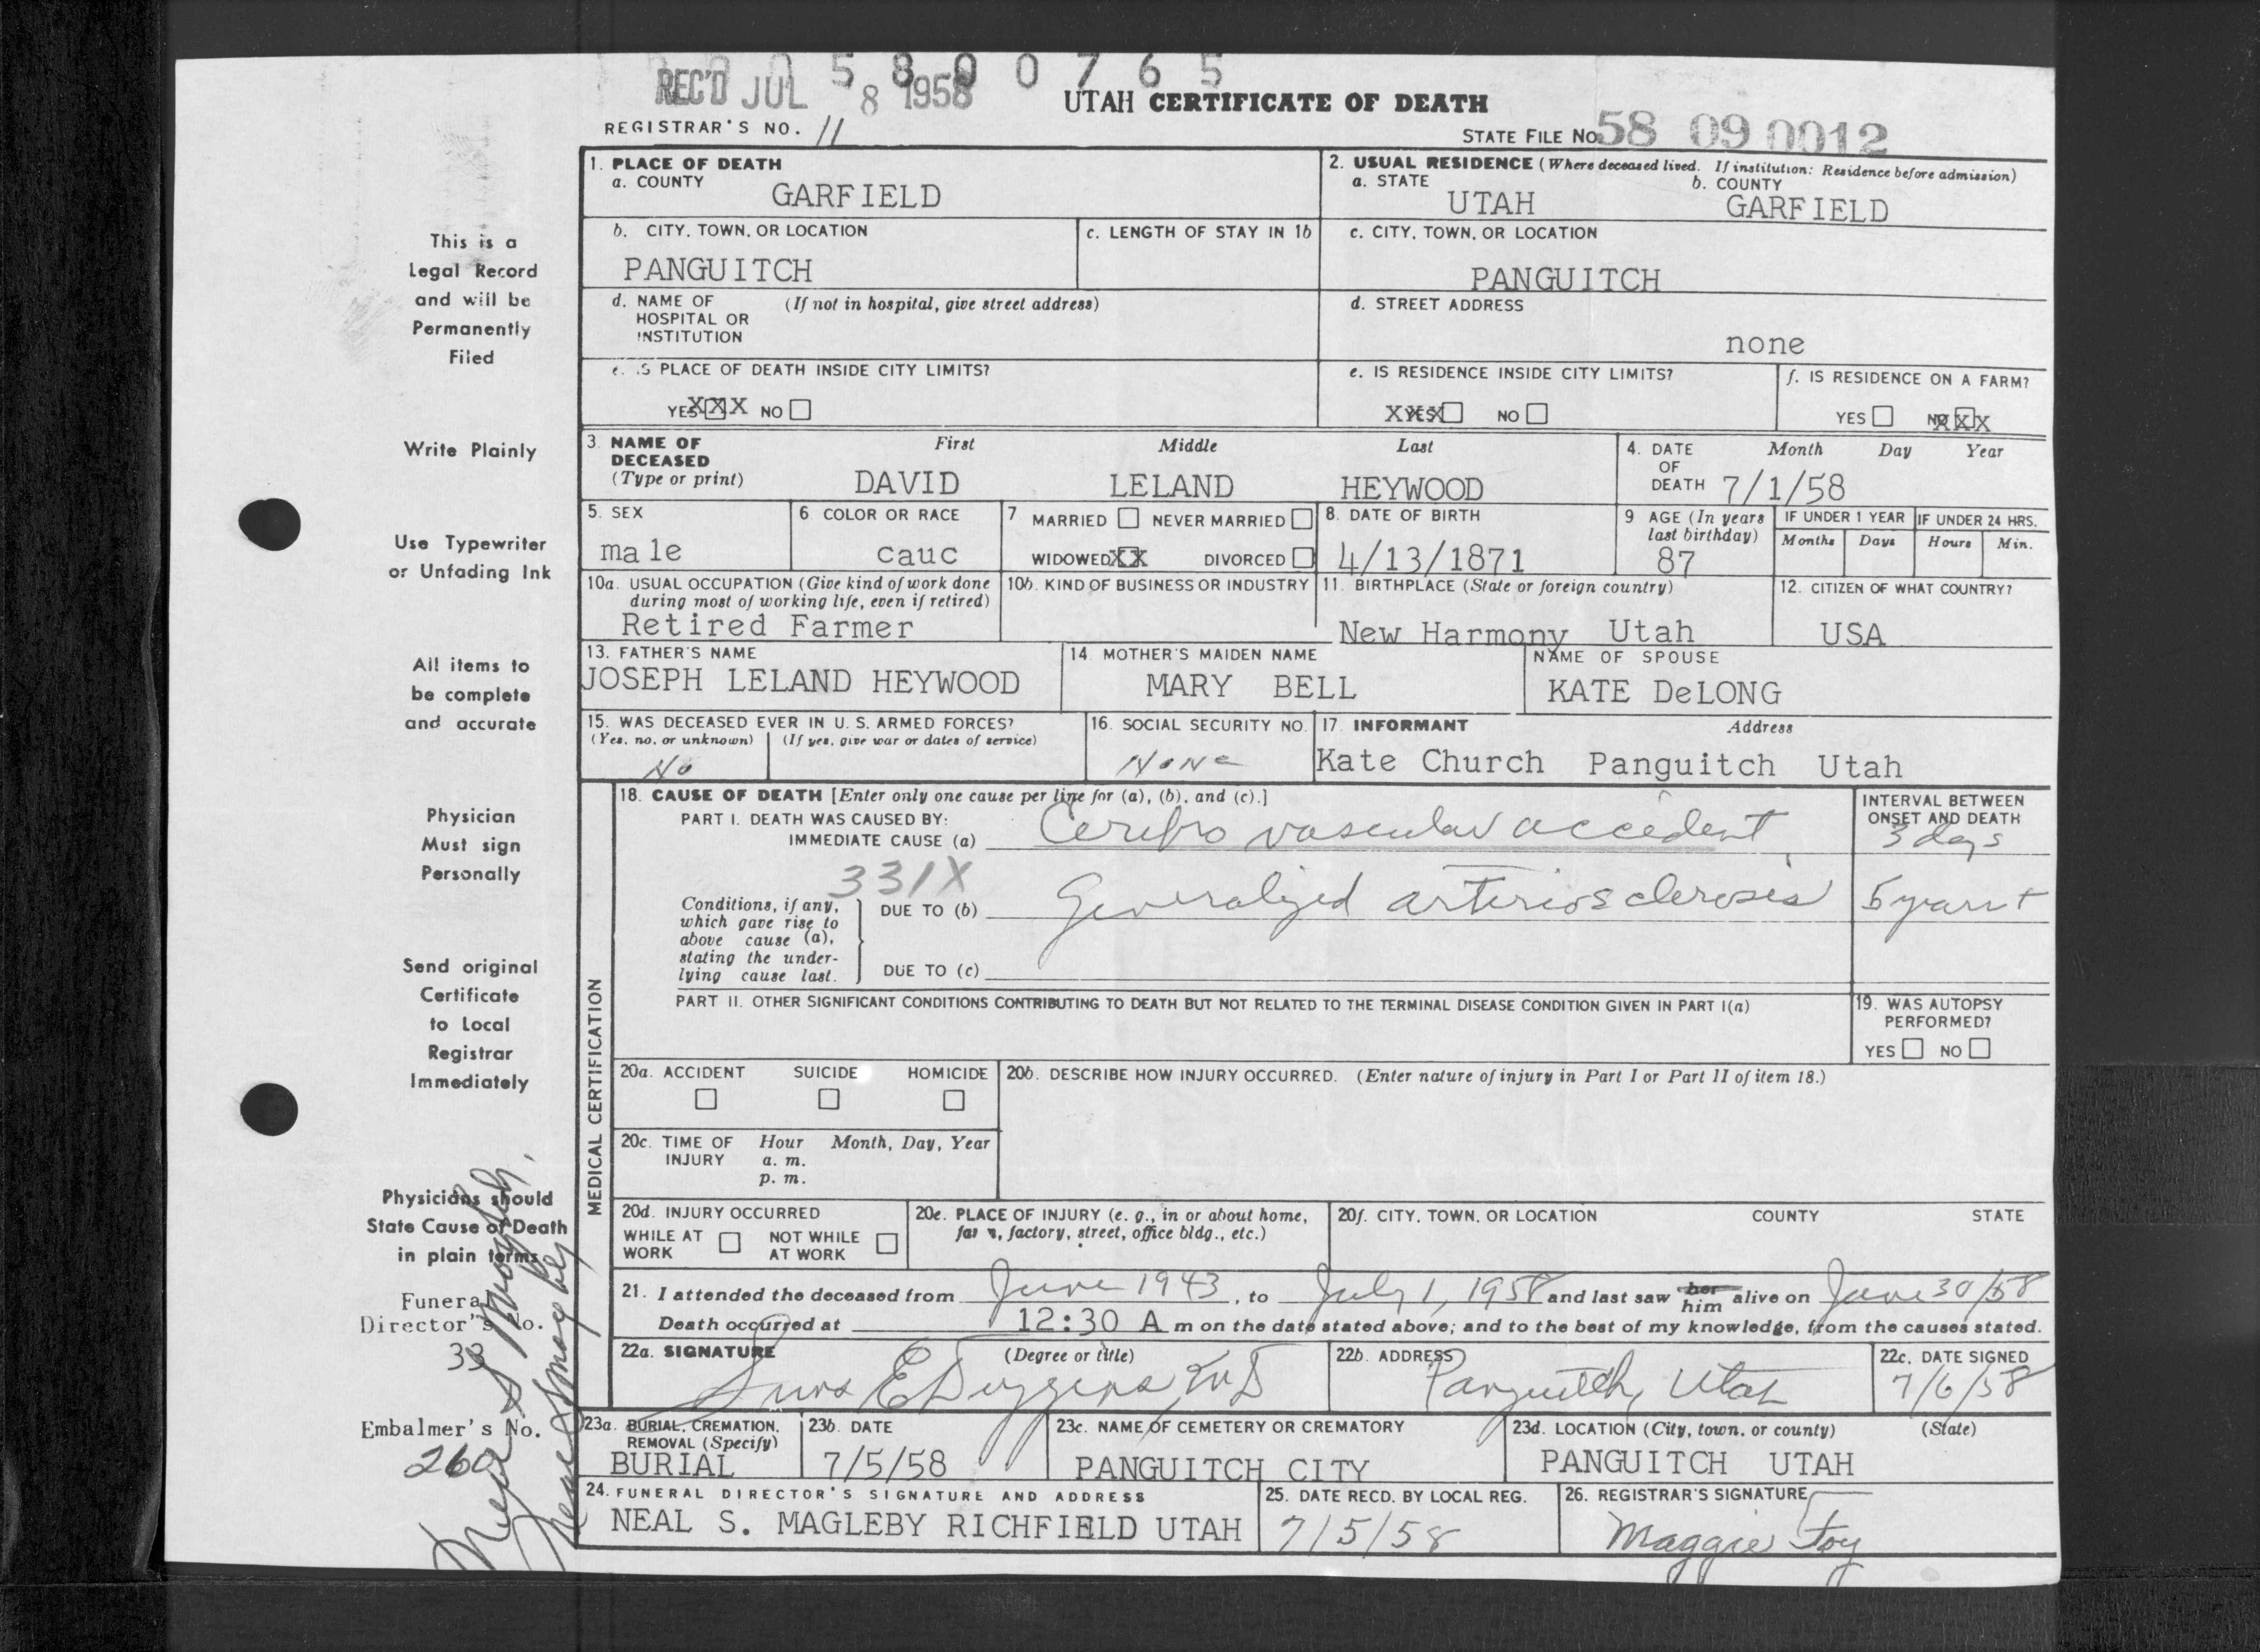 5 8 0 0 7 6 5
REC'D JUL 8 1958
UTAH CERTIFICATE OF DEATH
REGISTRAR'S NO. 11
STATE FILE NO. 58 09 0012
1. PLACE OF DEATH
a. COUNTY
GARFIELD
2. USUAL RESIDENCE (Where deceased lived. If institution: Residence before admission)
a. STATE b. COUNTY
UTAH GARFIELD
b. CITY, TOWN, OR LOCATION
PANGUITCH
c. LENGTH OF STAY IN 1b
c. CITY, TOWN, OR LOCATION
PANGUITCH
d. NAME OF (If not in hospital, give street address)
HOSPITAL OR
INSTITUTION
d. STREET ADDRESS
none
e. IS PLACE OF DEATH INSIDE CITY LIMITS?
YES XXX NO
e. IS RESIDENCE INSIDE CITY LIMITS?
XXX YES NO
f. IS RESIDENCE ON A FARM?
YES NO XXX
3. NAME OF DECEASED (Type or print)
First Middle Last
DAVID LELAND HEYWOOD
4. DATE OF DEATH Month Day Year
7/1/58
5. SEX
male
6 COLOR OR RACE
cauc
7 MARRIED NEVER MARRIED
WIDOWED XX DIVORCED
8. DATE OF BIRTH
4/13/1871
9 AGE (In years last birthday)
87
IF UNDER 1 YEAR IF UNDER 24 HRS.
Months Days Hours Min.
10a. USUAL OCCUPATION (Give kind of work done during most of working life, even if retired)
Retired Farmer
10b. KIND OF BUSINESS OR INDUSTRY
11. BIRTHPLACE (State or foreign country)
New Harmony Utah
12. CITIZEN OF WHAT COUNTRY?
USA
13. FATHER'S NAME
JOSEPH LELAND HEYWOOD
14 MOTHER'S MAIDEN NAME
MARY BELL
NAME OF SPOUSE
KATE DeLONG
15. WAS DECEASED EVER IN U. S. ARMED FORCES?
(Yes, no, or unknown) (If yes, give war or dates of service)
No
16. SOCIAL SECURITY NO.
None
17. INFORMANT Address
Kate Church Panguitch Utah
MEDICAL CERTIFICATION
18. CAUSE OF DEATH [Enter only one cause per line for (a), (b), and (c).]
PART I. DEATH WAS CAUSED BY:
IMMEDIATE CAUSE (a) Cerebro vascular accident
INTERVAL BETWEEN
ONSET AND DEATH
3 days
331X
Conditions, if any, which gave rise to above cause (a), stating the underlying cause last.
DUE TO (b) Generalized arteriosclerosis
5 years +
DUE TO (c)
PART II. OTHER SIGNIFICANT CONDITIONS CONTRIBUTING TO DEATH BUT NOT RELATED TO THE TERMINAL DISEASE CONDITION GIVEN IN PART I(a)
19. WAS AUTOPSY
PERFORMED?
YES NO
20a. ACCIDENT SUICIDE HOMICIDE
20b. DESCRIBE HOW INJURY OCCURRED. (Enter nature of injury in Part I or Part II of item 18.)
20c. TIME OF INJURY Hour Month, Day, Year
a. m.
p. m.
20d. INJURY OCCURRED
WHILE AT WORK NOT WHILE AT WORK
20e. PLACE OF INJURY (e. g., in or about home, farm, factory, street, office bldg., etc.)
20f. CITY, TOWN, OR LOCATION COUNTY STATE
21. I attended the deceased from June 1943, to July 1, 1958 and last saw her him alive on June 30/58
Death occurred at 12:30 A m on the date stated above; and to the best of my knowledge, from the causes stated.
22a. SIGNATURE (Degree or title)
Duggins MD
22b. ADDRESS
Panguitch, Utah
22c. DATE SIGNED
7/6/58
23a. BURIAL, CREMATION, REMOVAL (Specify)
BURIAL
23b. DATE
7/5/58
23c. NAME OF CEMETERY OR CREMATORY
PANGUITCH CITY
23d. LOCATION (City, town, or county) (State)
PANGUITCH UTAH
24. FUNERAL DIRECTOR'S SIGNATURE AND ADDRESS
NEAL S. MAGLEBY RICHFIELD UTAH
25. DATE RECD. BY LOCAL REG.
7/5/58
26. REGISTRAR'S SIGNATURE
Maggie Foy
This is a
Legal Record
and will be
Permanently
Filed
Write Plainly
Use Typewriter
or Unfading Ink
All items to
be complete
and accurate
Physician
Must sign
Personally
Send original
Certificate
to Local
Registrar
Immediately
Physicians should
State Cause of Death
in plain terms
Funeral
Director's No.
33
Embalmer's No.
260
Neal S Magleby
Neal S Magleby